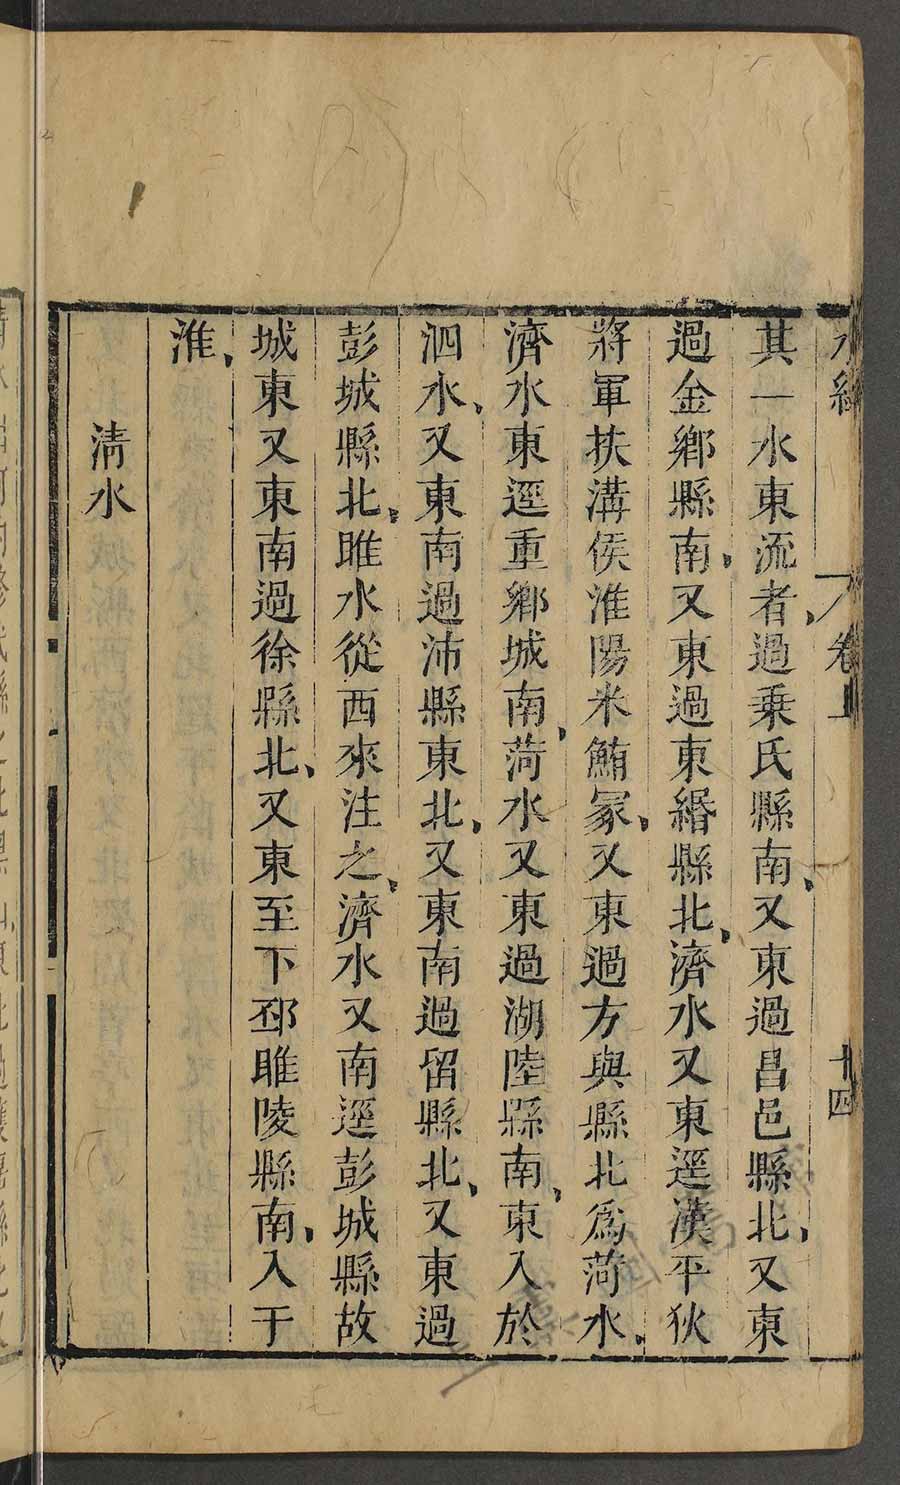 水經
卷上
十四
其一水東流者過乗氏縣南、又東過昌邑縣北、又東
過金鄉縣南、又東過東緡縣北、濟水又東逕漢平狄
將軍扶溝侯淮陽米鮪冢、又東過方與縣北爲菏水、
濟水東逕重鄉城南、菏水又東過湖陸縣南、東入於
泗水、又東南過沛縣東北、又東南過留縣北、又東過
彭城縣北、睢水從西來注之、濟水又南逕彭城縣故
城東又東南過徐縣北、又東至下邳睢陵縣南、入于
淮、
淸水